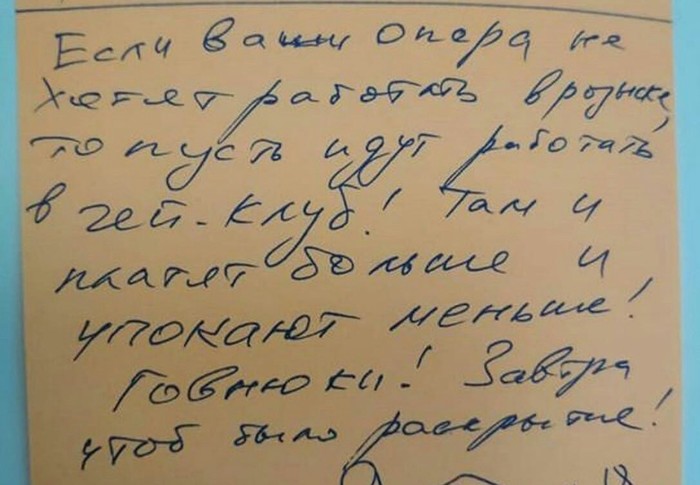 Если ваши опера не
хотят работать в розыске,
то пусть идут работать
в гей-клуб! Там и
платят больше и
упокают меньше!
Говнюки! Завтра
чтоб было раскрытие!
18